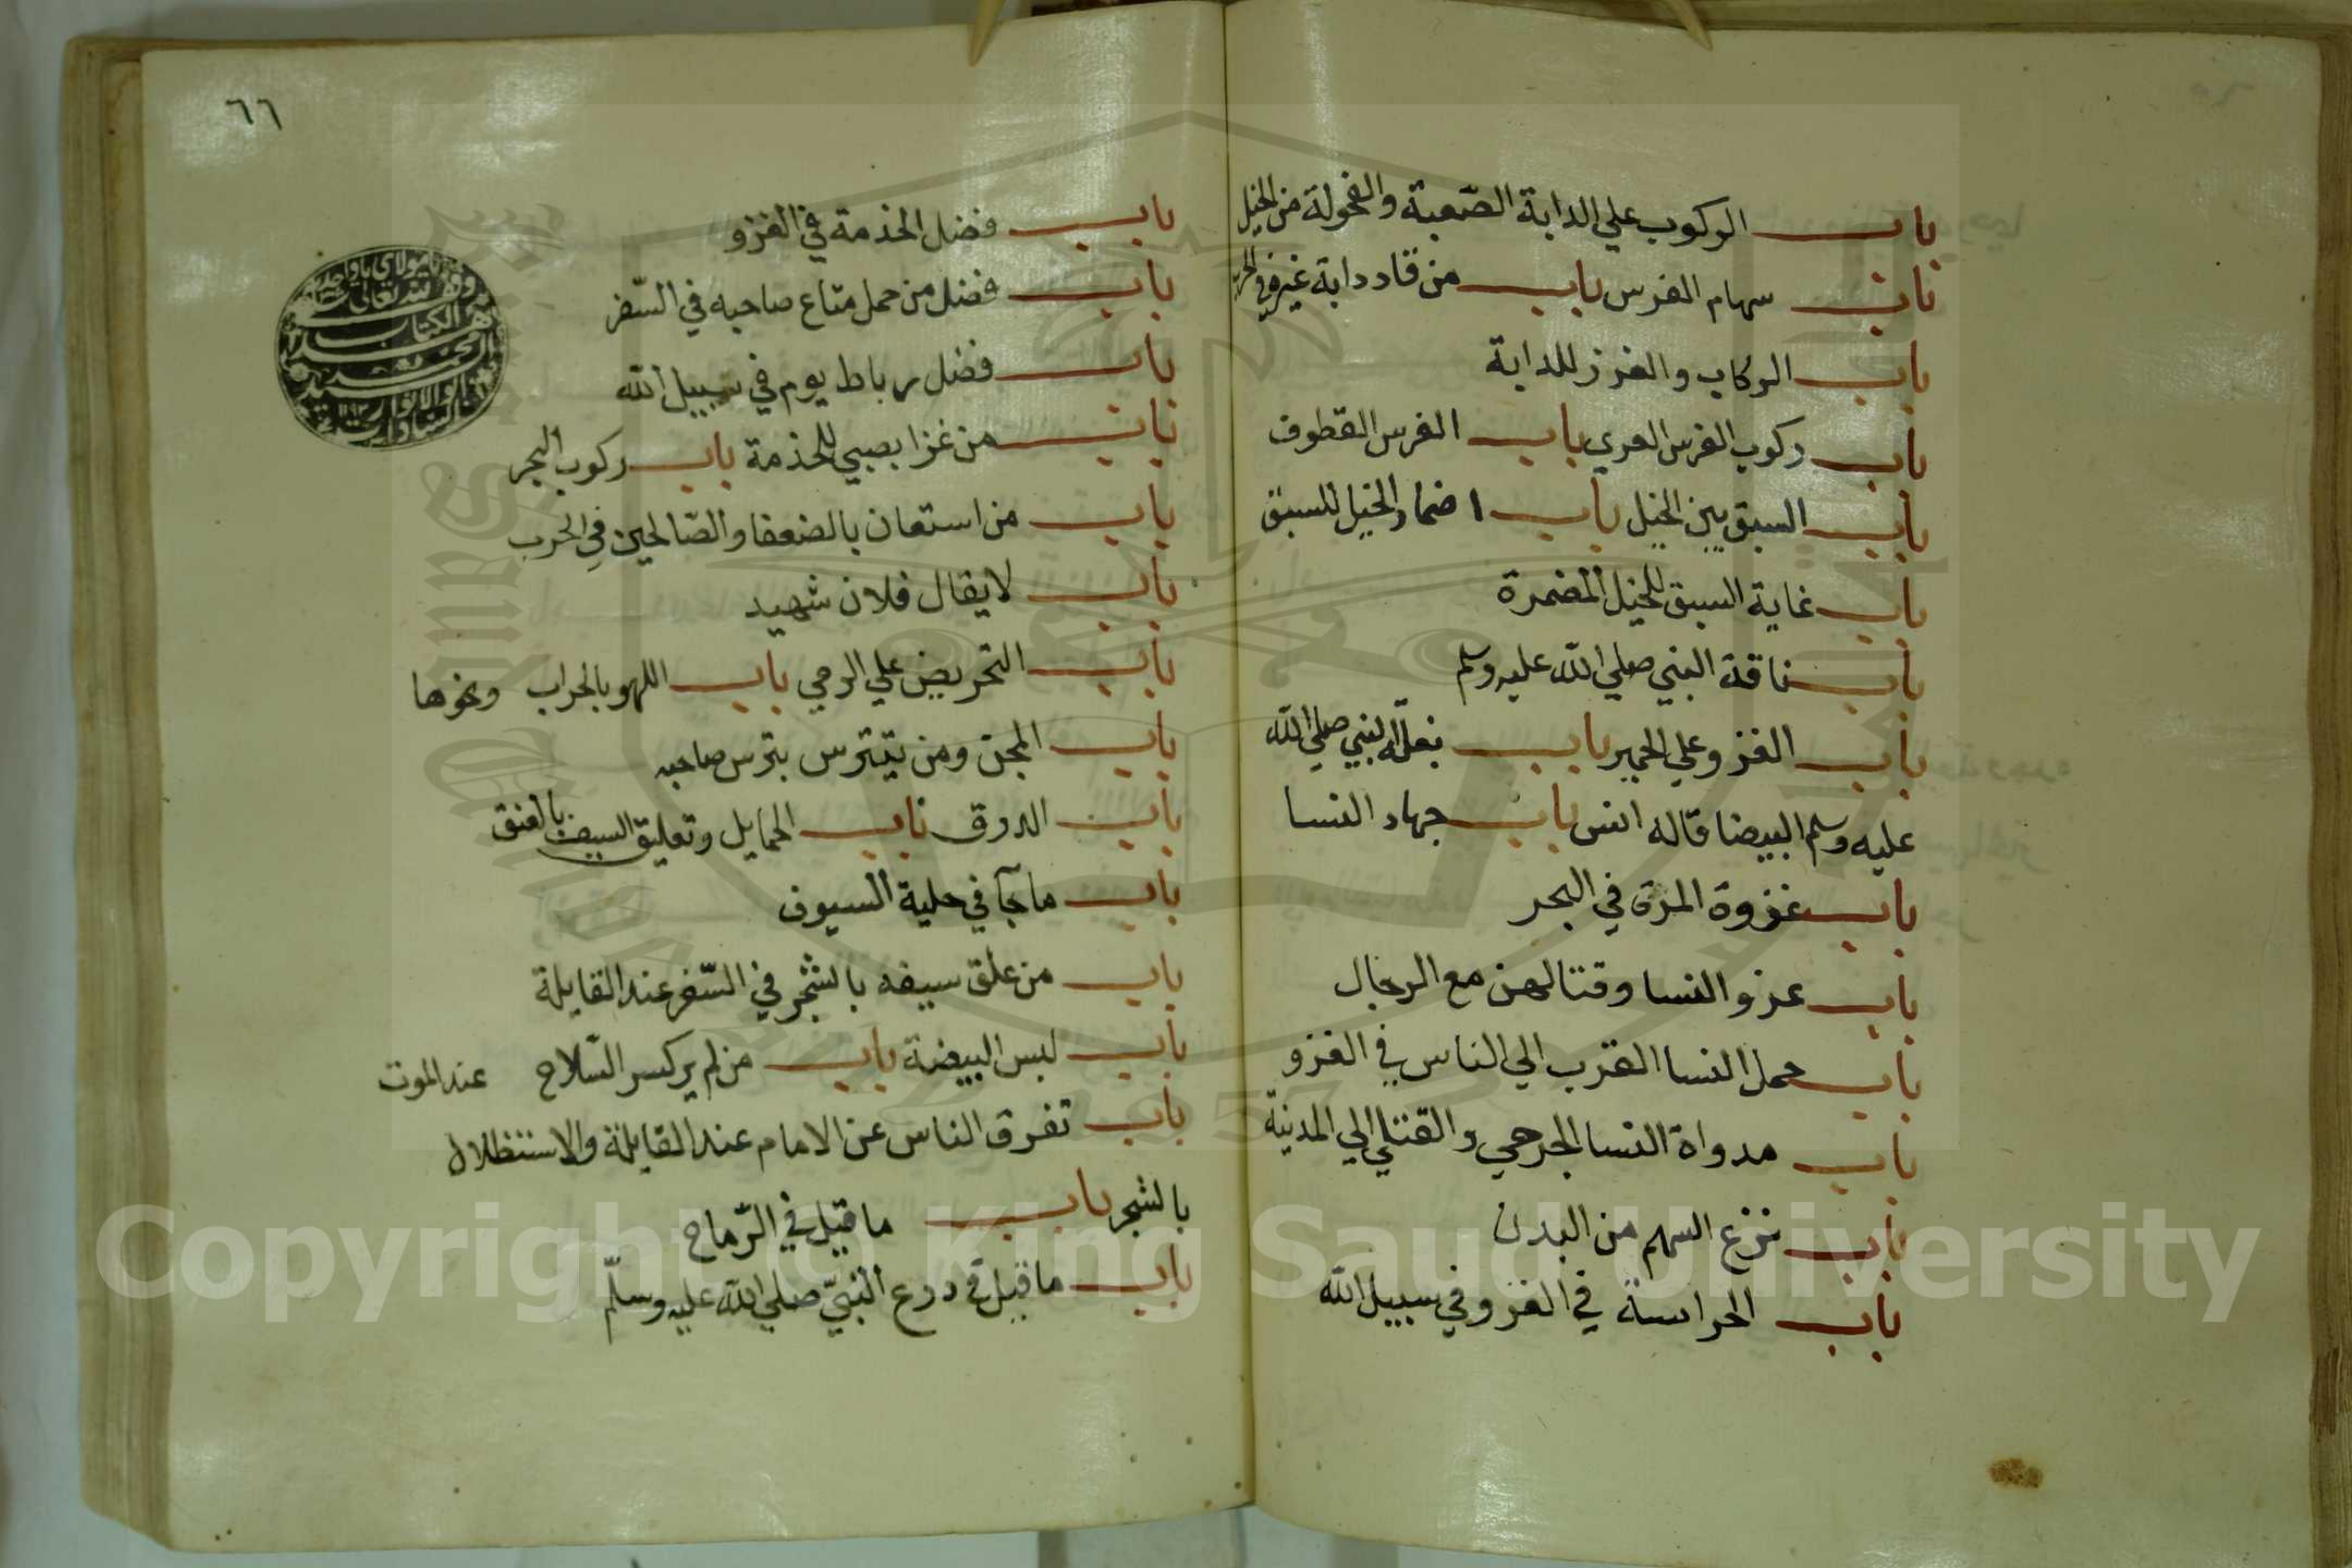 باب الركوب علي الدابة الصّعبة والفحولة من الخيل
باب سهام الفرس باب من قاد دابة غيره في الحرب
باب الركاب والغرز للدابة
باب ركوب الفرس العري باب الفرس القطوف
باب السبق بين الخيل باب اضمار الخيل للسبق
باب غاية السبق للخيل المضمرة
باب ناقة النبي صلي الله عليه وسلم
باب الغزو علي الحمير باب بغلة النبي صلي الله
عليه وسلم البيضا قاله انس باب جهاد النسا
باب غزوة المرة في البحر
باب غزو النسا وقتالهن مع الرجال
باب حمل النسا القرب الي الناس في الغزو
باب مدواة النسا الجرحي والقتلي الي المدينة
باب نزع السهم من البدن
باب الحراسة في الغزو في سبيل الله
٦٦
باب فضل الخدمة في الغزو
باب فضل من حمل متاع صاحبه في السّفر
باب فضل رباط يوم في سبيل الله
باب من غزا بصبي للخدمة باب ركوب البحر
باب من استعان بالضعفا والصّالحين في الحرب
باب لا يقال فلان شهيد
باب التحريض علي الرمي باب اللهو بالحراب ونحوها
باب المجن ومن يتترس بترس صاحبه
باب الدرق باب الحمايل وتعليق السيف بالعنق
باب ما جآ في حلية السيوف
باب من علق سيفه بالشجر في السّفر عند القايلة
باب لبس البيضة باب من لم ير كسر السّلاح عند الموت
باب تفرق الناس عن الامام عند القايلة والاستظلال
بالشجر باب ما قيل في الرّماح
باب ما قيل في درع النبيّ صلي الله عليه وسلّم
الكتاب
Copyright © King Saud University